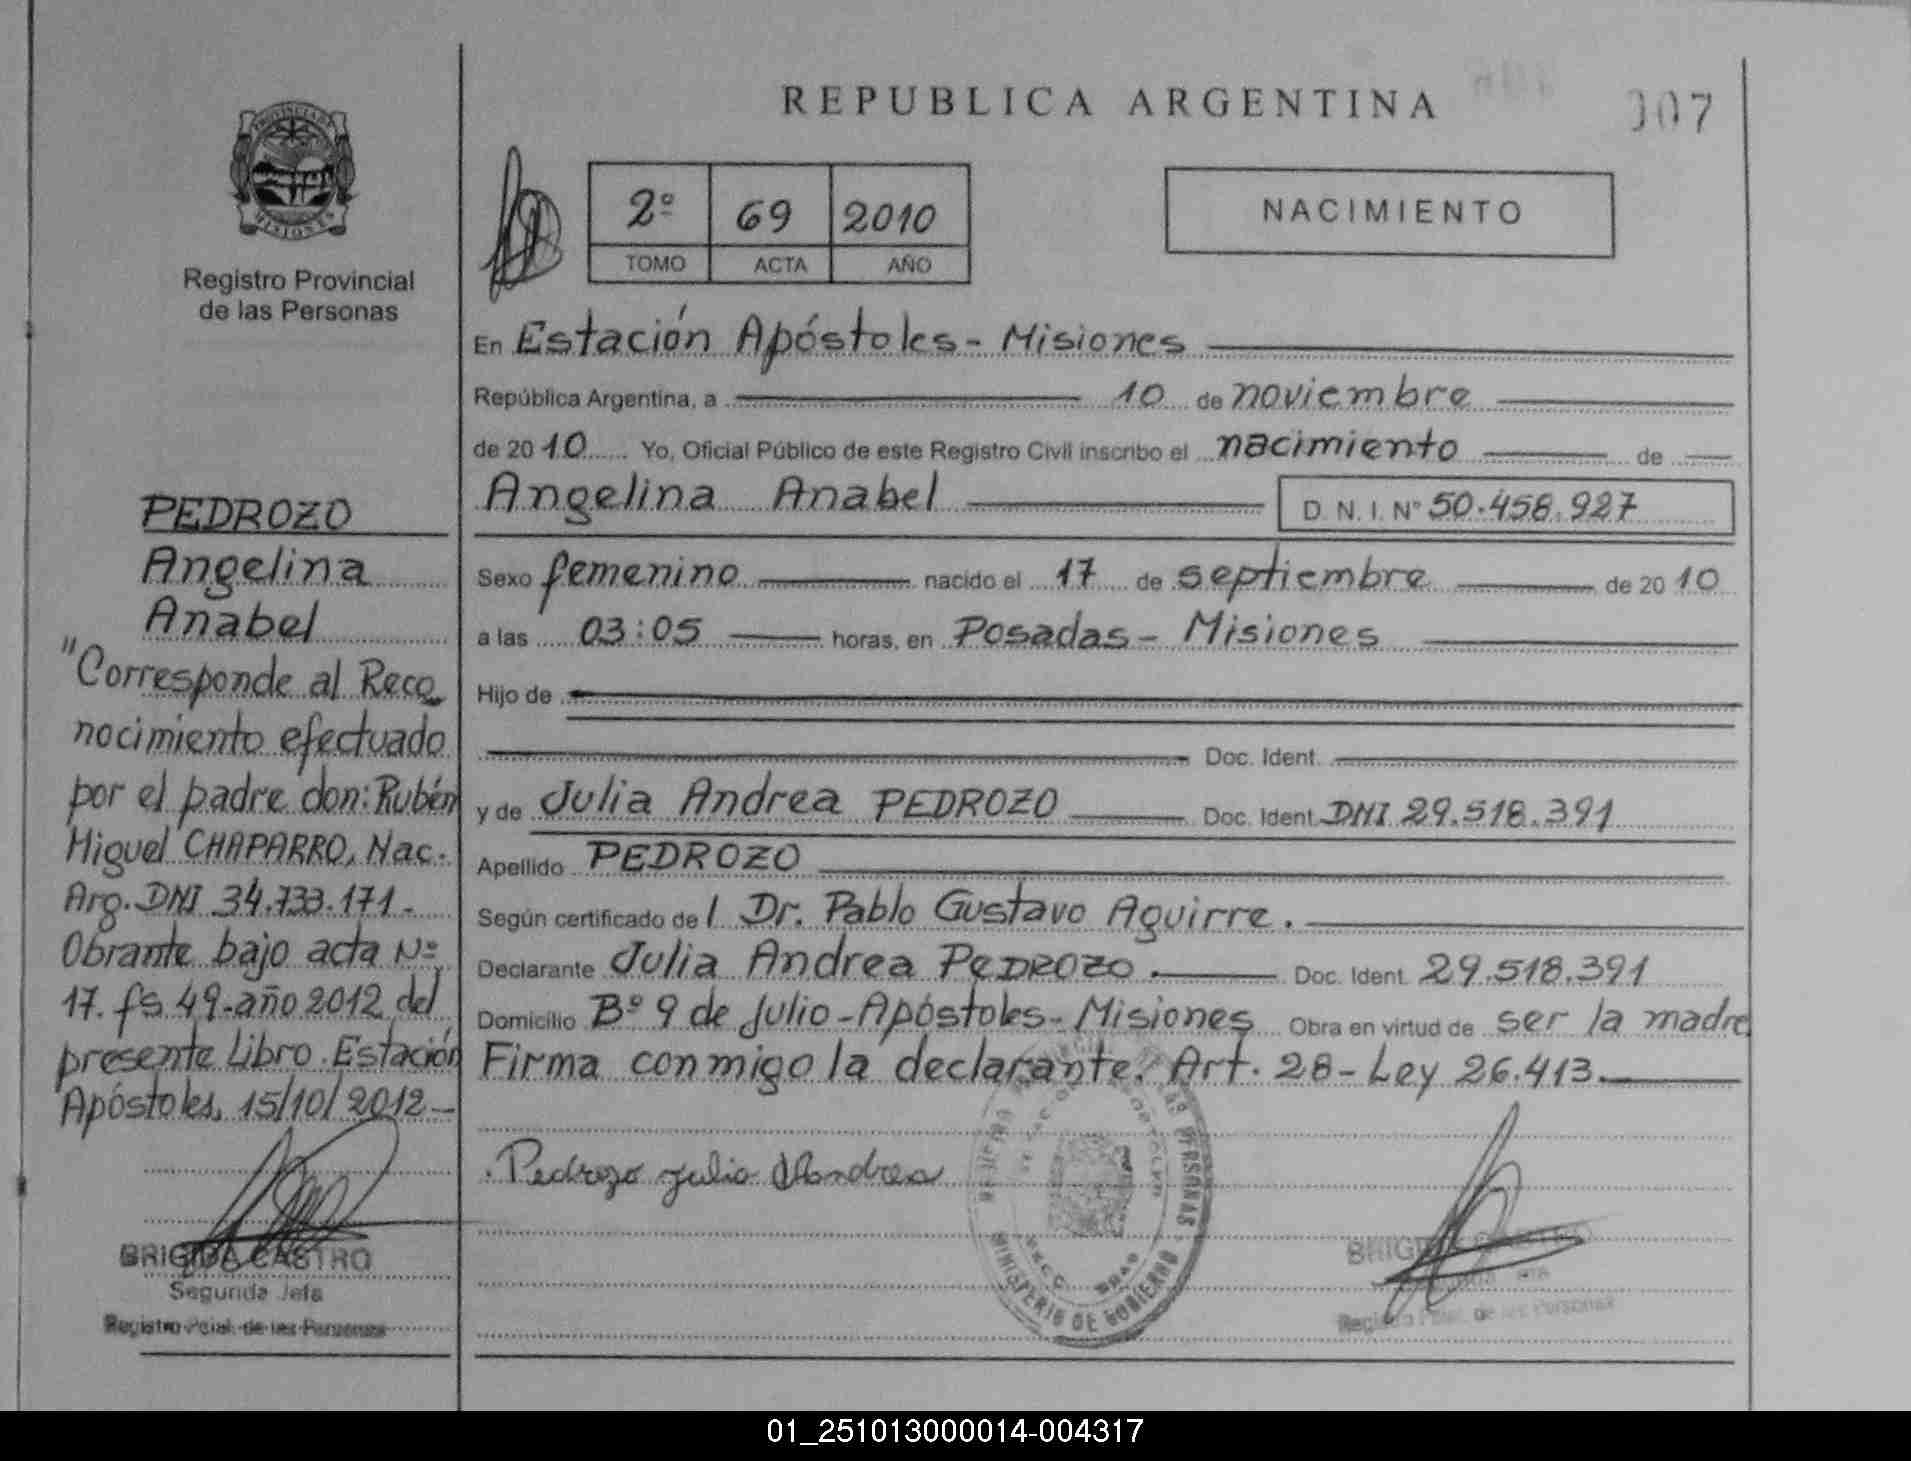 REPUBLICA ARGENTINA
007
PROVINCIA DE
MISIONES
Registro Provincial
de las Personas
2º 69 2010
TOMO ACTA AÑO
NACIMIENTO
En Estación Apóstoles - Misiones
República Argentina, a 10 de noviembre
de 2010 Yo, Oficial Público de este Registro Civil inscribo el nacimiento de
Angelina Anabel D. N. I. Nº 50.458.927
Sexo femenino nacido el 17 de septiembre de 2010
a las 03:05 horas, en Posadas - Misiones
Hijo de
Doc. Ident.
y de Julia Andrea PEDROZO Doc. Ident. DNI 29.518.391
Apellido PEDROZO
Según certificado de l Dr. Pablo Gustavo Aguirre.
Declarante Julia Andrea PEDROZO. Doc. Ident. 29.518.391
Domicilio Bº 9 de Julio - Apóstoles - Misiones Obra en virtud de ser la madre
Firma conmigo la declarante. Art. 28 - Ley 26.413.
Pedrozo Julia Andrea
MINISTERIO DE GOBIERNO
PERSONAS
PEDROZO
Angelina
Anabel
"Corresponde al Reco
nocimiento efectuado
por el padre don: Rubén
Miguel CHAPARRO, Nac.
Arg. DNI 34.733.171.-
Obrante bajo acta Nº
17. fs 49-año 2012 del
presente Libro. Estación
Apóstoles, 15/10/2012-
BRIGIDA CASTRO
Segunda Jefa
Registro Pcial. de las Personas
BRIGIDA CASTRO
Segunda Jefa
Registro Pcial. de las Personas
01_251013000014-004317